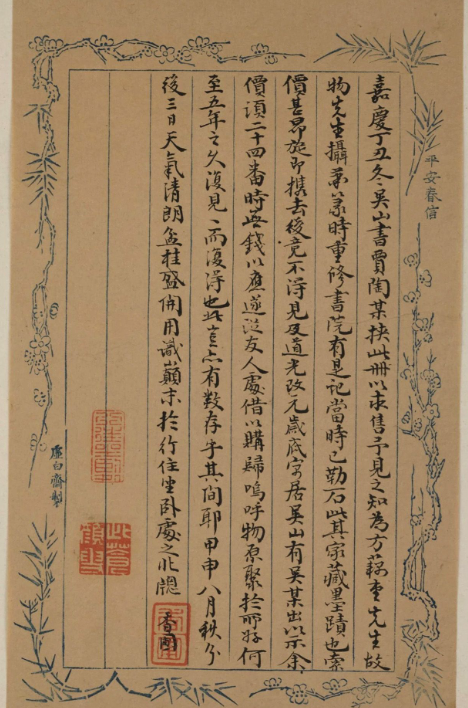 嘉慶丁丑冬吳山書賈陶某挾此冊以求售予見之知為方藕堂先生故
物先生攝弟篆時重修書院有是記當時已勒石此其家藏墨蹟也索
價甚昂旋即携去後竟不得見及道光改元歲底寓居吳山有吳某出以示余
價須二十四番時無錢以應遂從友人處借以購歸嗚呼物原聚於所好何
至五年之久復見〻而復得也此豈亦有数存乎其間耶甲申八月秋分
後三日天氣清朗盆桂盛開用識巔末於行住坐卧處之北牕
香圃
平安春信
虛白齋製